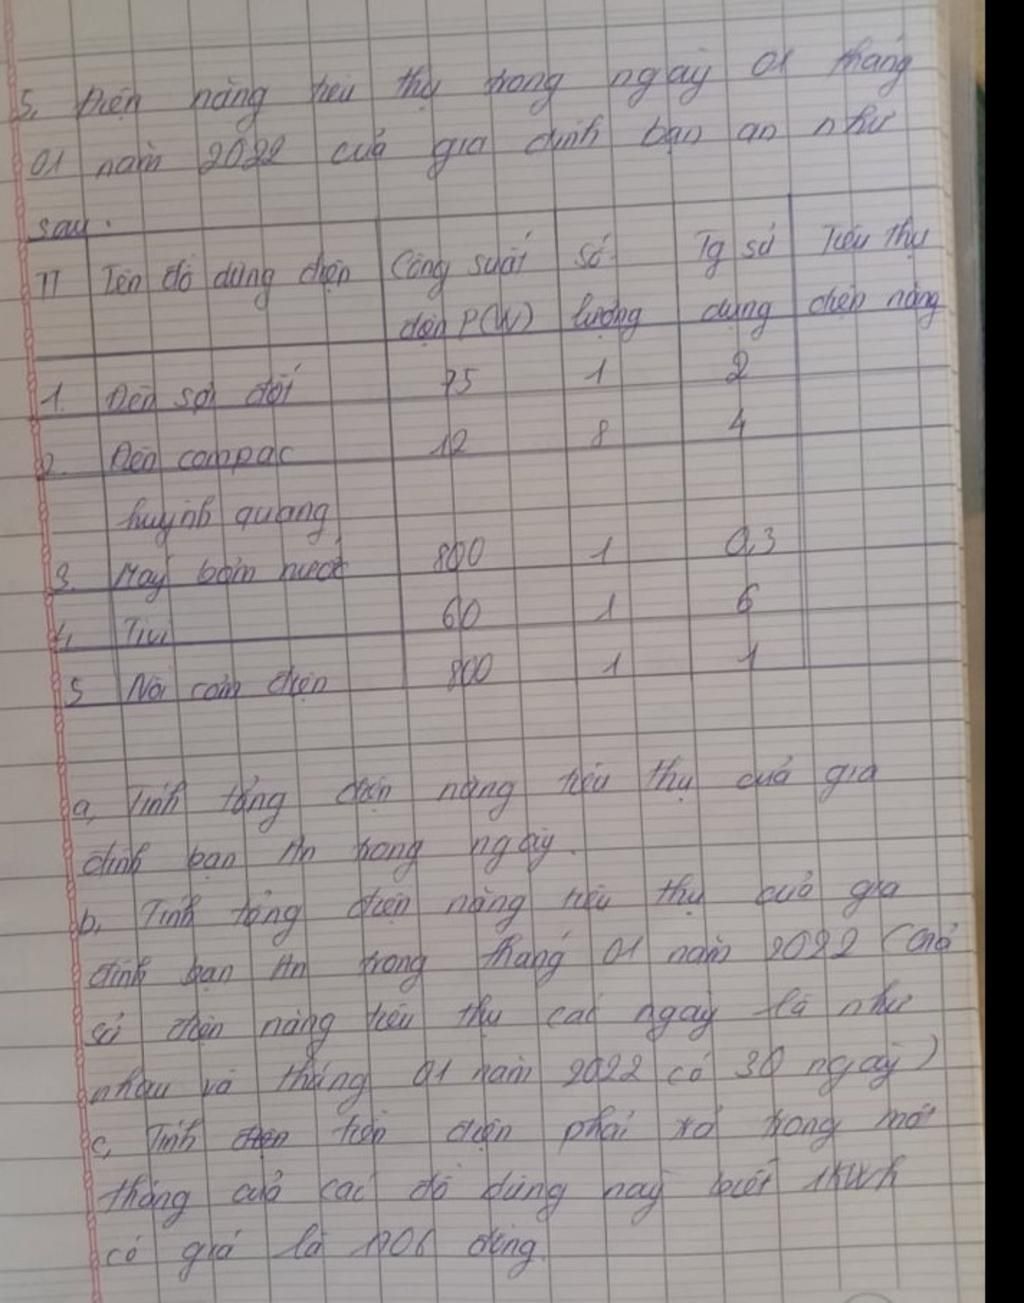 5. Điện năng tiêu thụ trong ngày 01 tháng
01 năm 2022 của gia đình bạn an như
sau.
TT Tên đồ dùng điện Công suất điện P(W) Số lượng Tg sử dụng Tiêu thụ điện năng
1. Đèn sợi đốt 75 1 2
2. Đèn compac huỳnh quang 12 8 4
3. Máy bơm nước 800 1 0,3
4. Tivi 60 1 6
5 Nồi cơm điện 800 1 1
a, Tính tổng điện năng tiêu thụ của gia
đình bạn An trong ngày.
b, Tính tổng điện năng tiêu thụ của gia
đình bạn An trong tháng 01 năm 2022 (Giả
sử điện năng tiêu thụ các ngày là như
nhau và tháng 01 năm 2022 có 30 ngày)
c, Tính tiền điện phải trả trong một
tháng của các đồ dùng này biết 1KWh
có giá là đồng.